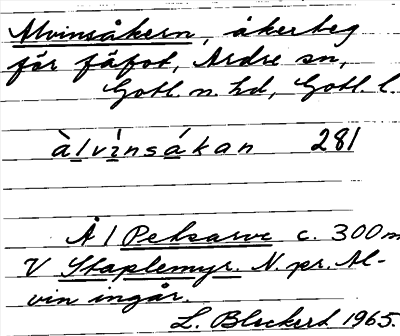 Alvinsåkern, åkerteg
för fäfot, Ardre sn,
Gotl. n. hd, Gotl. l.
àlvìnsákan 281
Å / Petsarve c. 300 m
V Staplemyr. N. pr. Al-
vin ingår.
L. Blockert 1965.